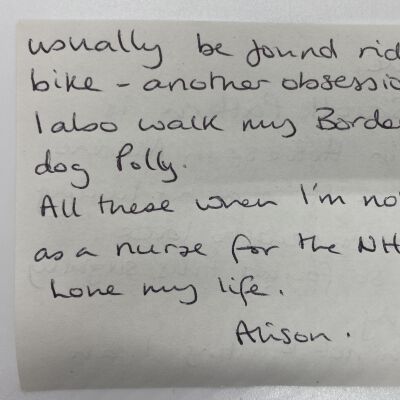 usually be found rid
bike - another obsessio
I also walk my Borde
dog Polly.
All these when I'm no
as a nurse for the NH
Love my life.
Alison.